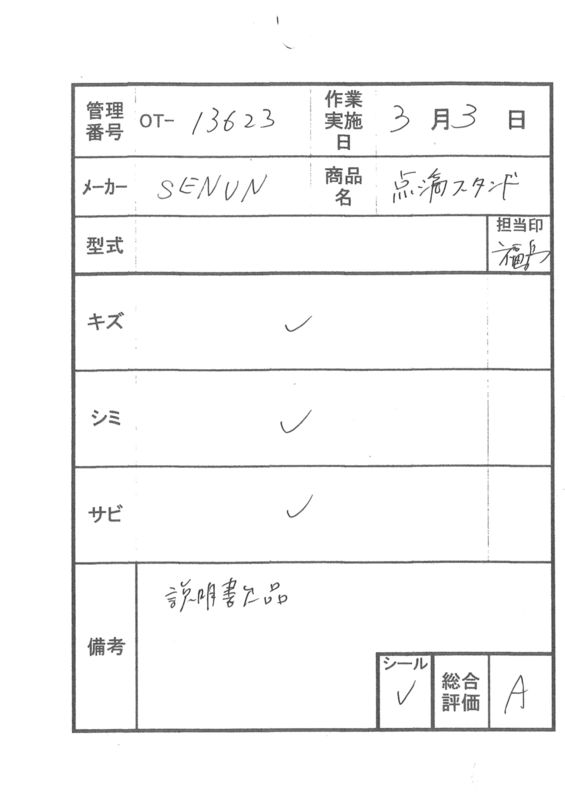 管理番号 OT- 13623 作業実施日 3月3日
メーカー SENUN 商品名 点滴スタンド
型式 担当印 福島
キズ ✓
シミ ✓
サビ ✓
備考 説明書欠品
シール ✓ 総合評価 A